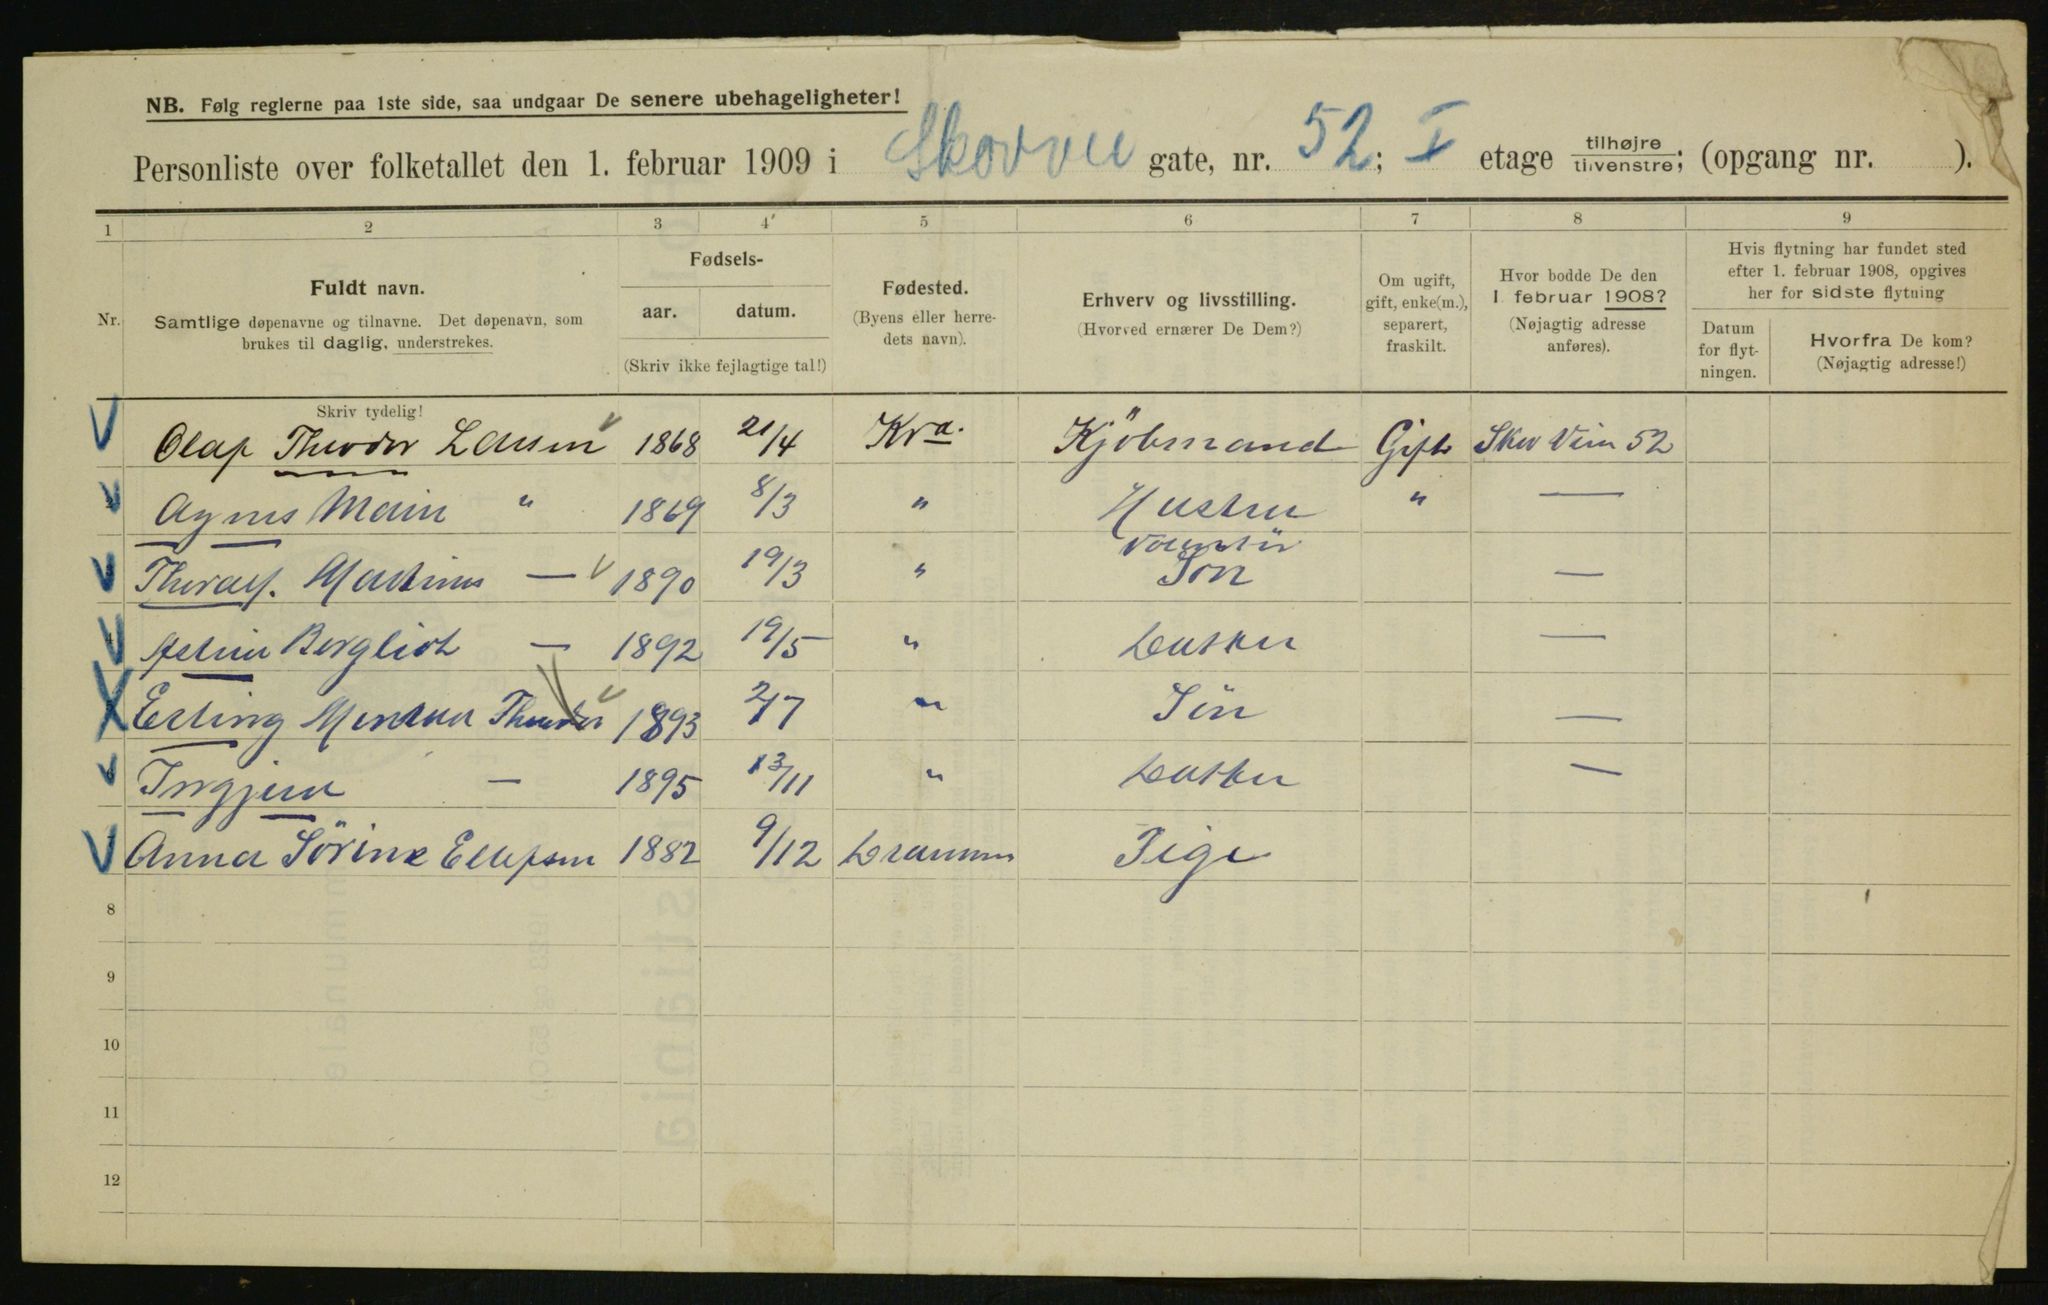 NB. Følg reglerne paa 1ste side, saa undgaar De senere ubehageligheter!
Personliste over folketallet den 1. februar 1909 i Skovvei gate, nr. 52; I etage tilhøjre tilvenstre; (opgang nr. ).
1 2 3 4 5 6 7 8 9
Nr.
Fuldt navn.
Samtlige døpenavne og tilnavne. Det døpenavn, som
brukes til daglig, understrekes.
Skriv tydelig!
Fødsels-
aar. datum.
(Skriv ikke fejlagtige tal!)
Fødested.
(Byens eller herre-
dets navn).
Erhverv og livsstilling.
(Hvorved ernærer De Dem?)
Om ugift,
gift, enke(m.),
separert,
fraskilt.
Hvor bodde De den
1 februar 1908?
(Nøjagtig adresse
anføres).
Hvis flytning har fundet sted
efter 1. februar 1908, opgives
her for sidste flytning
Datum
for flyt-
ningen.
Hvorfra De kom?
(Nøjagtig adresse!)
Olaf Theodor Larsen 1868 21/4 Kra. Kjöbmand Gift Skov Vein 52
Agnes Marie " 1869 8/3 " Hustru " —
Thoralf. Mathias — 1890 19/3 " Volontör Sön —
Bergliot — 1892 19/5 " Datter —
Erling Theodor 1893 2/7 " Sön —
Ingjerd — 1895 13/11 " Datter —
Anna Sörine Ellefsen 1882 9/12 Drammen Pige
8
9
10
11
12